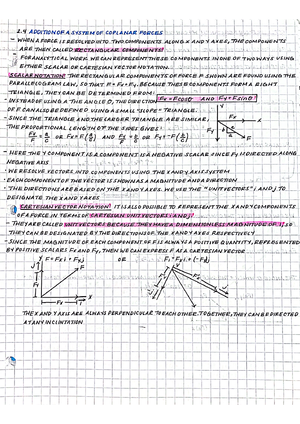 2.4 ADDITION OF A SYSTEM OF COPLANAR FORCES
- WHEN A FORCE IS RESOLVED INTO TWO COMPONENTS ALONG X AND Y AXES, THE COMPONENTS
ARE THEN CALLED RECTANGULAR COMPONENTS!
FOR ANALYTICAL WORK WE CAN REPRESENT THESE COMPONENTS IN ONE OF TWO WAYS USING
EITHER SCALAR OR CARTESIAN VECTOR NOTATION
SCALAR NOTATION! THE RECTANGULAR COMPONENTS OF FORCE F SHOWN ARE FOUND USING THE
PARALLELOGRAM LAW, SO THAT F = Fx + Fy, BECAUSE THESE COMPONENTS FORM A RIGHT
TRIANGLE, THEY CAN BE DETERMINED FROM:
INSTEAD OF USING A THE ANGLE Θ, THE DIRECTION Fx = F cosθ AND Fy = F sinθ
OF F CAN ALSO BE DEFINED USING A SMALL "SLOPE" - TRIANGLE.
- SINCE THE TRIANGLE AND THE LARGER TRIANGLE ARE SIMILAR,
THE PROPORTIONAL LENGTH OF THE SIDES GIVES:
Fx/F = a/c OR Fx = F(a/c) AND Fy/F = b/c OR Fy = -F(b/c)
Fx
Fy
F
- HERE THE Y COMPONENT IS A COMPONENT IS A NEGATIVE SCALAR SINCE Fy IS DIRECTED ALONG
NEGATIVE AXIS
- WE RESOLVE VECTORS INTO COMPONENTS USING THE X AND Y AXIS SYSTEM
- EACH COMPONENT OF THE VECTOR IS SHOWN AS A MAGNITUDE AND A DIRECTION
- THE DIRECTIONS ARE BASED ON THE X AND Y AXES. WE USE THE "UNIT VECTORS" i AND j TO
DESIGNATE THE X AND Y AXES
CARTESIAN VECTOR NOTATION! IT IS ALSO POSSIBLE TO REPRESENT THE X AND Y COMPONENTS
OF A FORCE IN TERMS OF CARTESIAN UNIT VECTORS i AND j!
- THEY ARE CALLED UNIT VECTORS BECAUSE THEY HAVE A DIMENSIONLESS MAGNITUDE OF 1, SO
THEY CAN BE DESIGNATED BY THE DIRECTION OF THE X AND Y AXES RESPECTIVELY
- SINCE THE MAGNITUDE OF EACH COMPONENT OF F IS ALWAYS A POSITIVE QUANTITY, REPRESENTED
BY POSITIVE SCALARS Fx AND Fy, THEN WE CAN EXPRESS F AS A CARTESIAN VECTOR
Y F = Fx i + Fy j OR F' = F'x i + (-F'y j)
F
Fy
Fx
X
THE X AND Y AXIS ARE ALWAYS PERPENDICULAR TO EACH OTHER. TOGETHER, THEY CAN BE DIRECTED
AT ANY INCLINATION